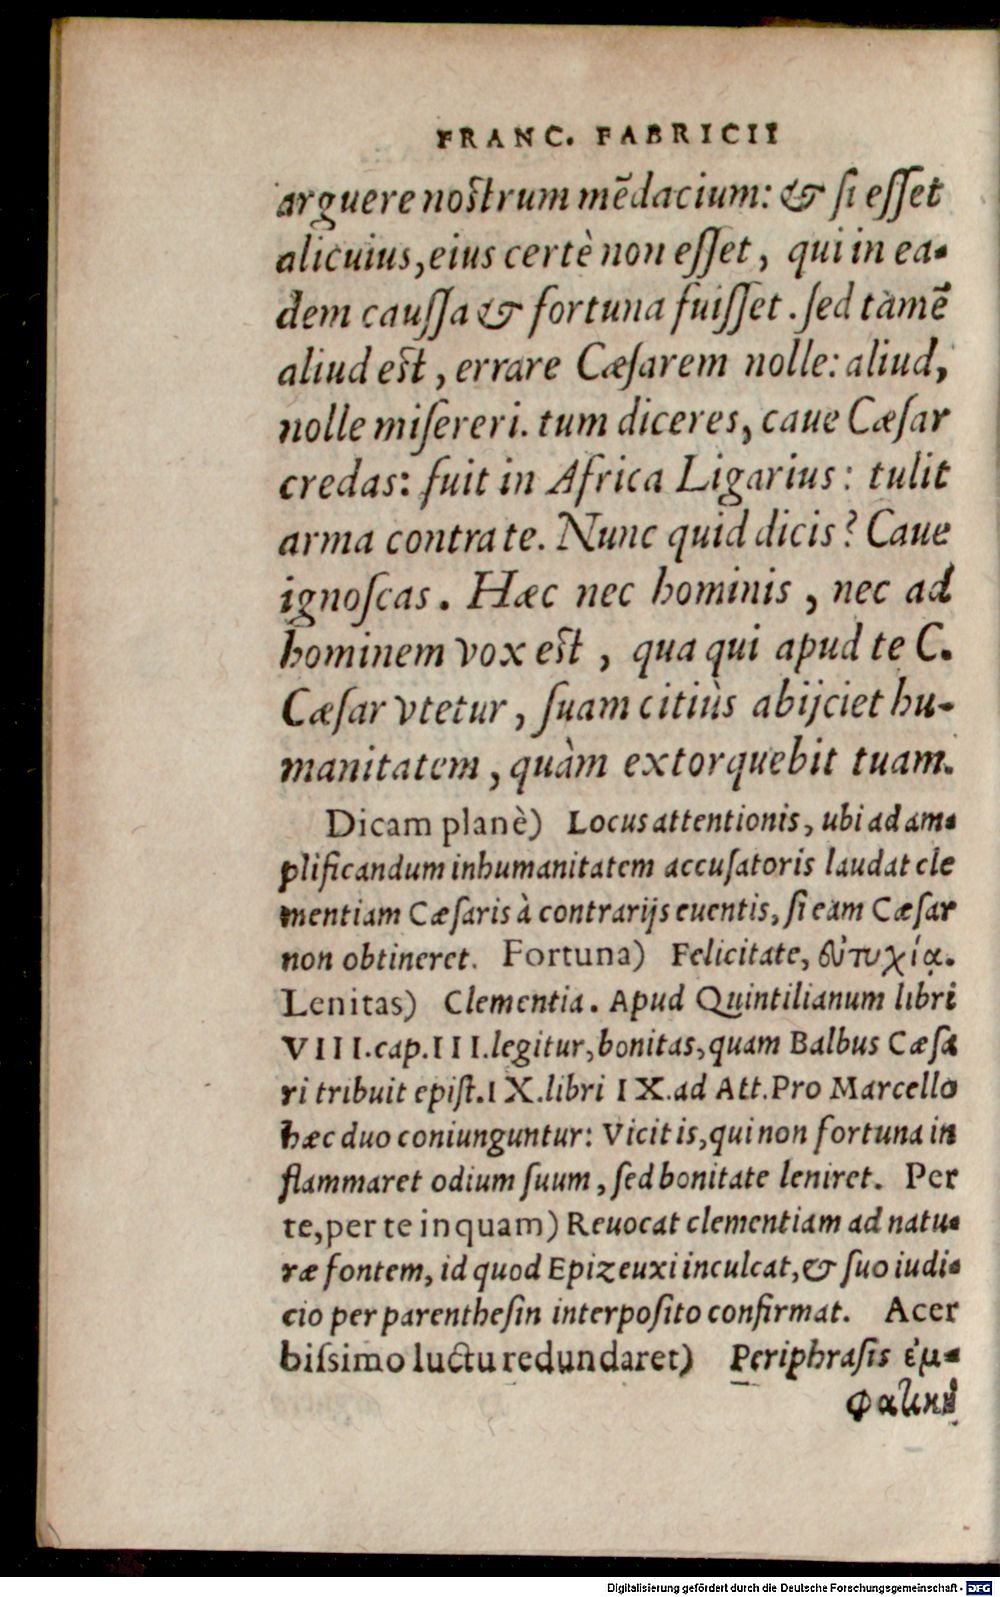 FRANC. FABRICII
arguere nostrum mēdacium: & ſi eſſet
alicuius, eius certè non eſſet, qui in ea-
dem cauſſa & fortuna fuiſſet. ſed tamē
aliud est, errare Cæſarem nolle: aliud,
nolle miſereri. tum diceres, caue Cæſar
credas: fuit in Africa Ligarius: tulit
arma contra te. Nunc quid dicis? Caue
ignoſcas. Hæc nec hominis, nec ad
hominem vox est, qua qui apud te C.
Cæſar vtetur, ſuam citiùs abijciet hu-
manitatem, quàm extorquebit tuam.
Dicam planè) Locus attentionis, ubi ad am-
plificandum inhumanitatem accuſatoris laudat cle
mentiam Cæſaris à contrarijs euentis, ſi eam Cæſar
non obtineret. Fortuna) Felicitate, εὐτυχίᾳ.
Lenitas) Clementia. Apud Quintilianum libri
VIII. cap. III. legitur, bonitas, quam Balbus Cæſa
ri tribuit epiſt. IX. libri IX. ad Att. Pro Marcello
hæc duo coniunguntur: Vicit is, qui non fortuna in
flammaret odium ſuum, ſed bonitate leniret. Per
te, per te inquam) Reuocat clementiam ad natu-
ræ fontem, id quod Epizeuxi inculcat, & ſuo iudi-
cio per parentheſin interpoſito confirmat. Acer
biſsimo luctu redundaret) Periphraſis ἐμ-
φατικὴ
Digitalisierung gefördert durch die Deutsche Forschungsgemeinschaft - DFG